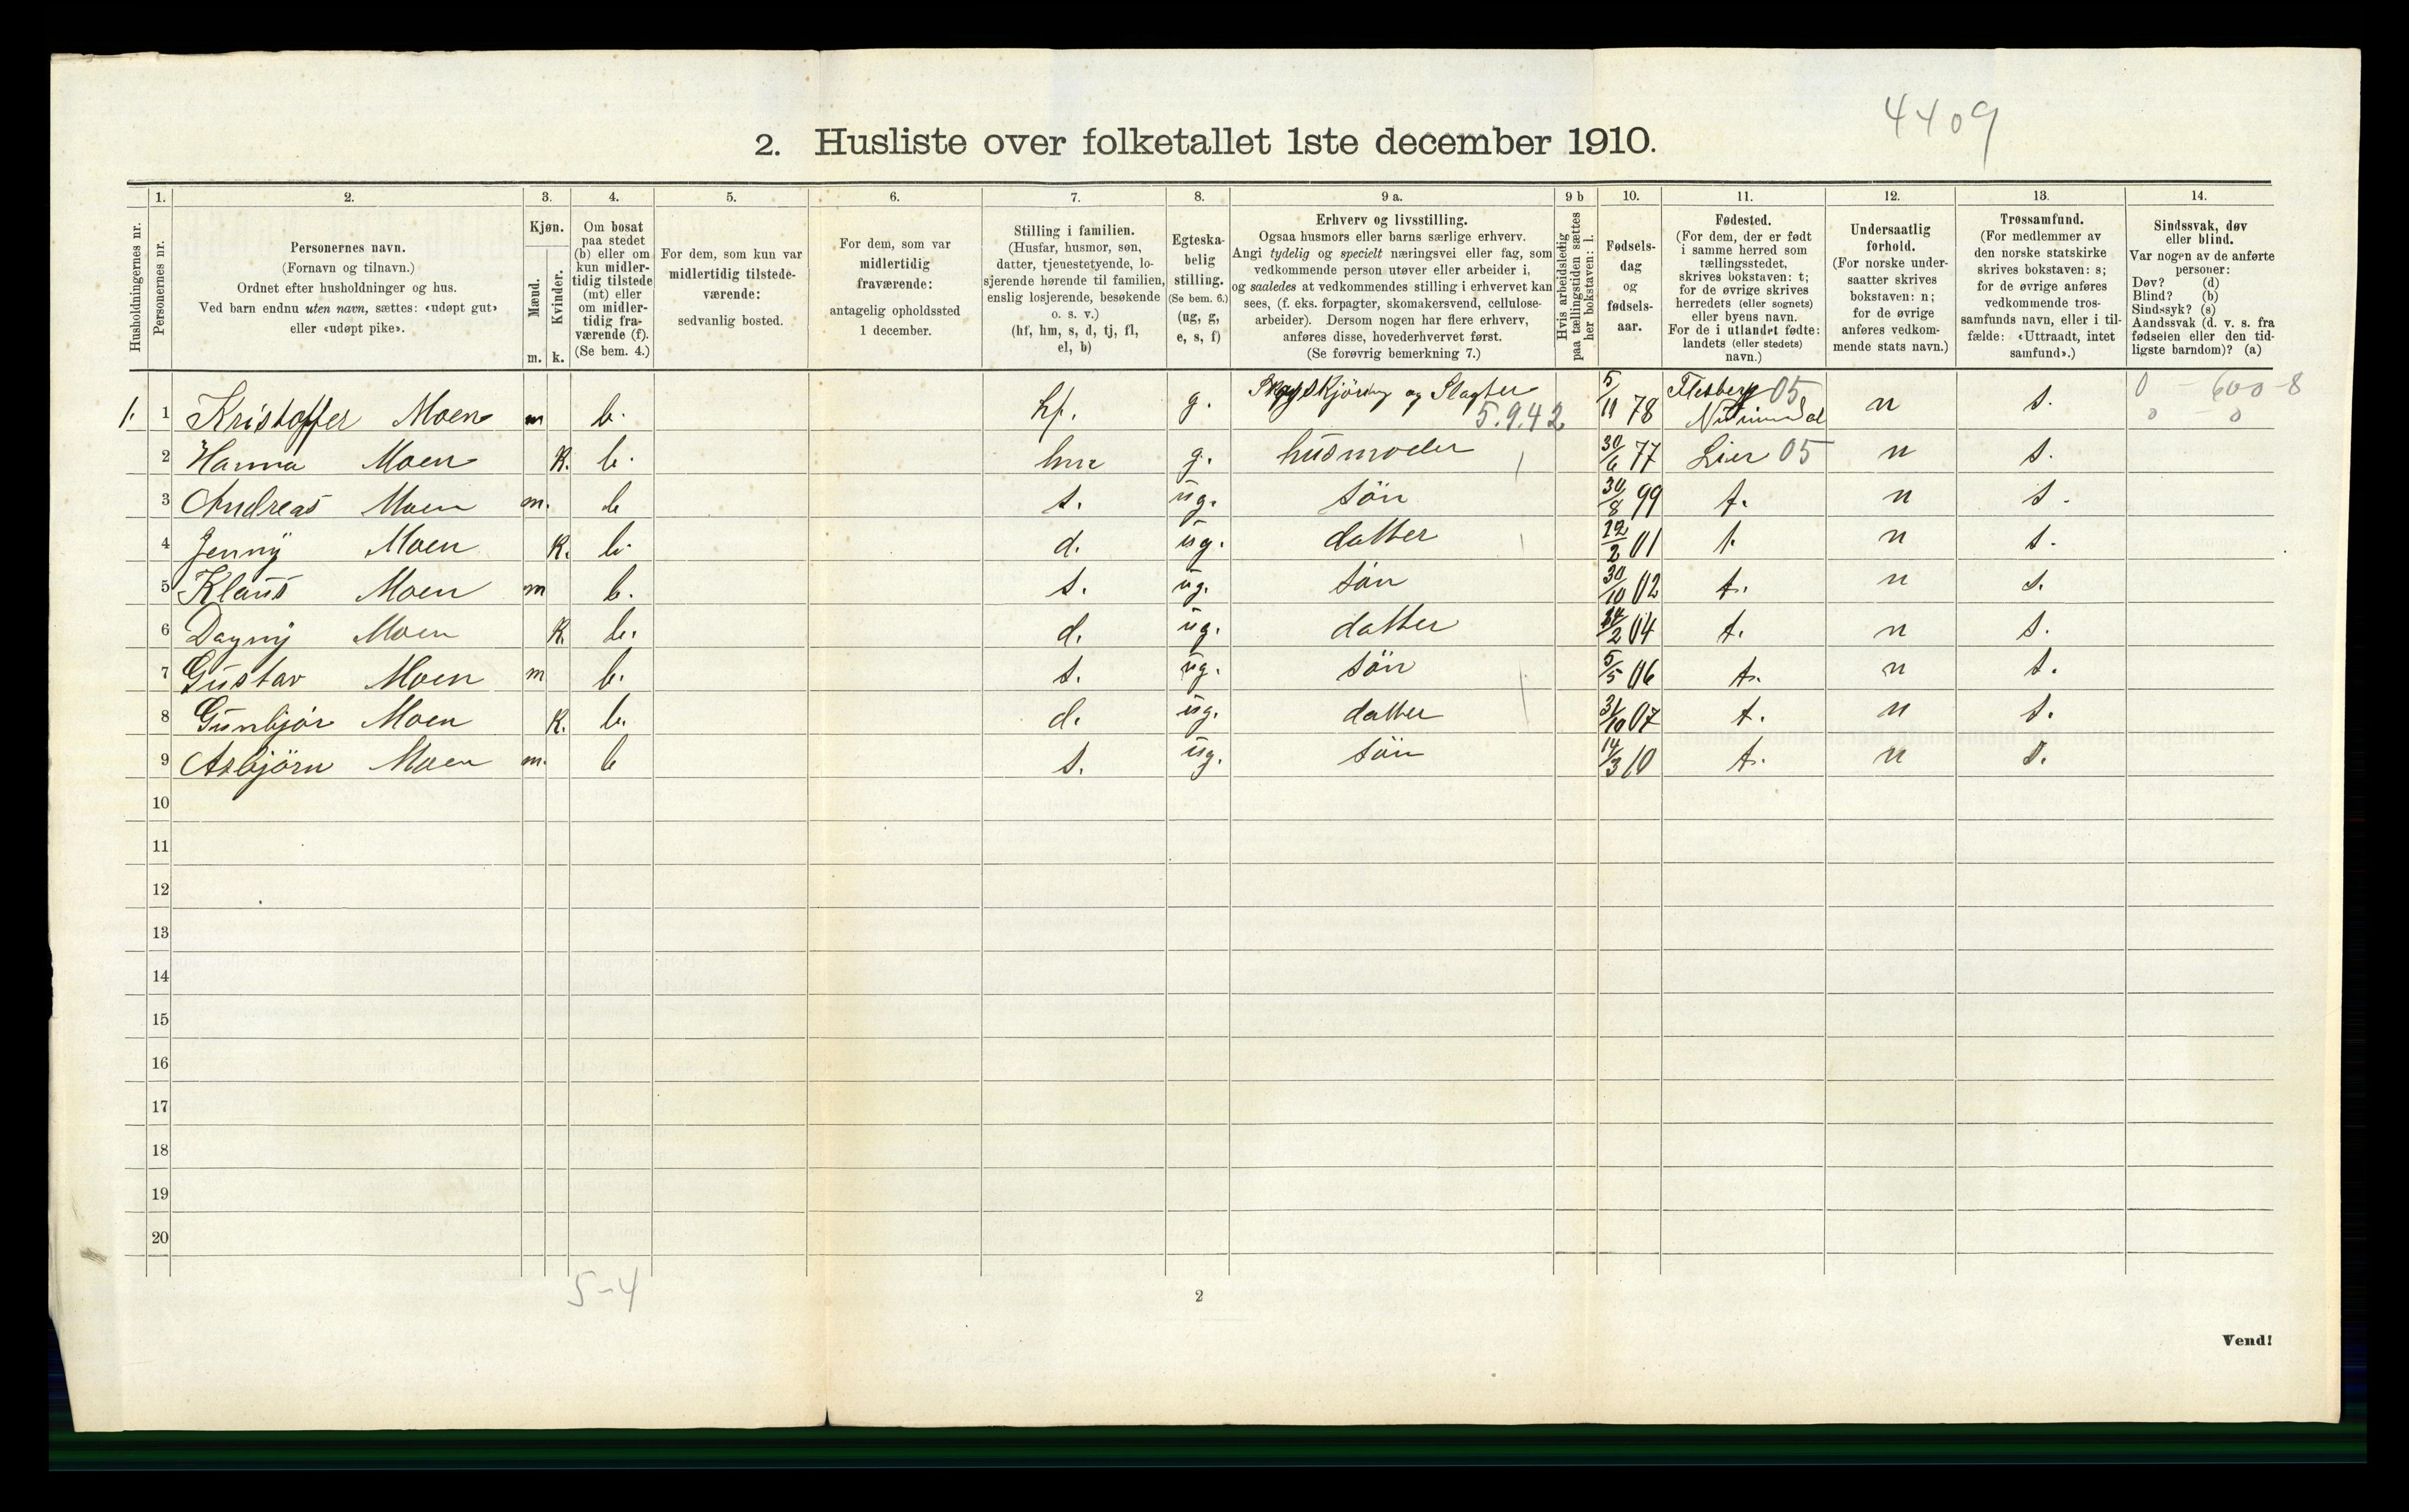 4409
2. Husliste over folketallet 1ste december 1910.
Husholdningernes nr.
1.
Personernes nr.
2.
Personernes navn.
(Fornavn og tilnavn.)
Ordnet efter husholdninger og hus.
Ved barn endnu uten navn, sættes: «udøpt gut»
eller «udøpt pike».
3.
Kjøn.
Mænd.
Kvinder.
m. k.
4.
Om bosat
paa stedet
(b) eller om
kun midler-
tidig tilstede
(mt) eller
om midler-
tidig fra-
værende (f).
(Se bem. 4.)
5.
For dem, som kun var
midlertidig tilstede-
værende:
sedvanlig bosted.
6.
For dem, som var
midlertidig
fraværende:
antagelig opholdssted
1 december.
7.
Stilling i familien.
(Husfar, husmor, søn,
datter, tjenestetyende, lo-
sjerende hørende til familien,
enslig losjerende, besøkende
o. s. v.)
(hf, hm, s, d, tj, fl,
el, b)
8.
Egteska-
belig
stilling.
(Se bem. 6.)
(ug, g,
e, s, f)
9 a.
Erhverv og livsstilling.
Ogsaa husmors eller barns særlige erhverv.
Angi tydelig og specielt næringsvei eller fag, som
vedkommende person utøver eller arbeider i,
og saaledes at vedkommendes stilling i erhvervet kan
sees, (f. eks. forpagter, skomakersvend, cellulose-
arbeider). Dersom nogen har flere erhverv,
anføres disse, hovederhvervet først.
(Se forøvrig bemerkning 7.)
9 b
Hvis arbeidsledig
paa tællingstiden sættes
her bokstaven: l.
10.
Fødsels-
dag
og
fødsels-
aar.
11.
Fødested.
(For dem, der er født
i samme herred som
tællingsstedet,
skrives bokstaven: t;
for de øvrige skrives
herredets (eller sognets)
eller byens navn.
For de i utlandet fødte:
landets (eller stedets)
navn.)
12.
Undersaatlig
forhold.
(For norske under-
saatter skrives
bokstaven: n;
for de øvrige
anføres vedkom-
mende stats navn.)
13.
Trossamfund.
(For medlemmer av
den norske statskirke
skrives bokstaven: s;
for de øvrige anføres
vedkommende tros-
samfunds navn, eller i til-
fælde: «Uttraadt, intet
samfund».)
14.
Sindssvak, døv
eller blind.
Var nogen av de anførte
personer:
Døv? (d)
Blind? (b)
Sindssyk? (s)
Aandssvak (d. v. s. fra
fødselen eller den tid-
ligste barndom)? (a)
1. 1 Kristoffer Moen m b. hf. g. Skogskjöring og Slagter 5.9.42 5/11 78 Flesberg 05 n s. 0 - 600-8
0 - 0
2 Hanna Moen K. b. hm g. husmoder 30/6 77 Lier 05 n s.
3 Andreas Moen m. b s. ug. sön 30/8 99 t. n s.
4 Jenny Moen K. b. d. ug. datter 22/2 01 t. n s.
5 Klaus Moen m b. s. ug. sön 30/10 02 t. n s.
6 Dagny Moen K. b. d. ug. datter 04 t. n s.
7 Gustav Moen m b. s. ug. sön 5/5 06 t. n s.
8 Gunbjør Moen K. b. d. ug. datter 31/10 07 t. n s.
9 Asbjörn Moen m. b s. ug. sön 14/3 10 t. n s.
10
11
12
13
14
15
16
17
18
19
20
5-4
2
Vend!